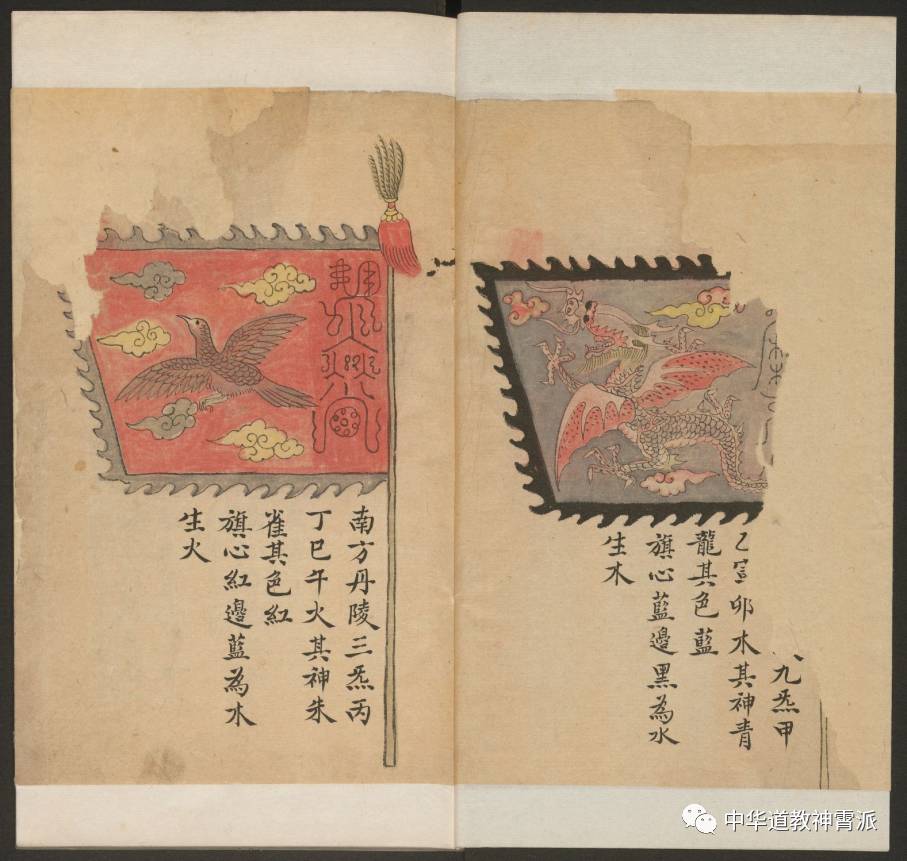 九炁甲
乙寅卯木其神青
龍其色藍
旗心藍邊黑為水
生木
南方丹陵三炁丙
丁巳午火其神朱
雀其色紅
旗心紅邊藍為木
生火
中华道教神霄派